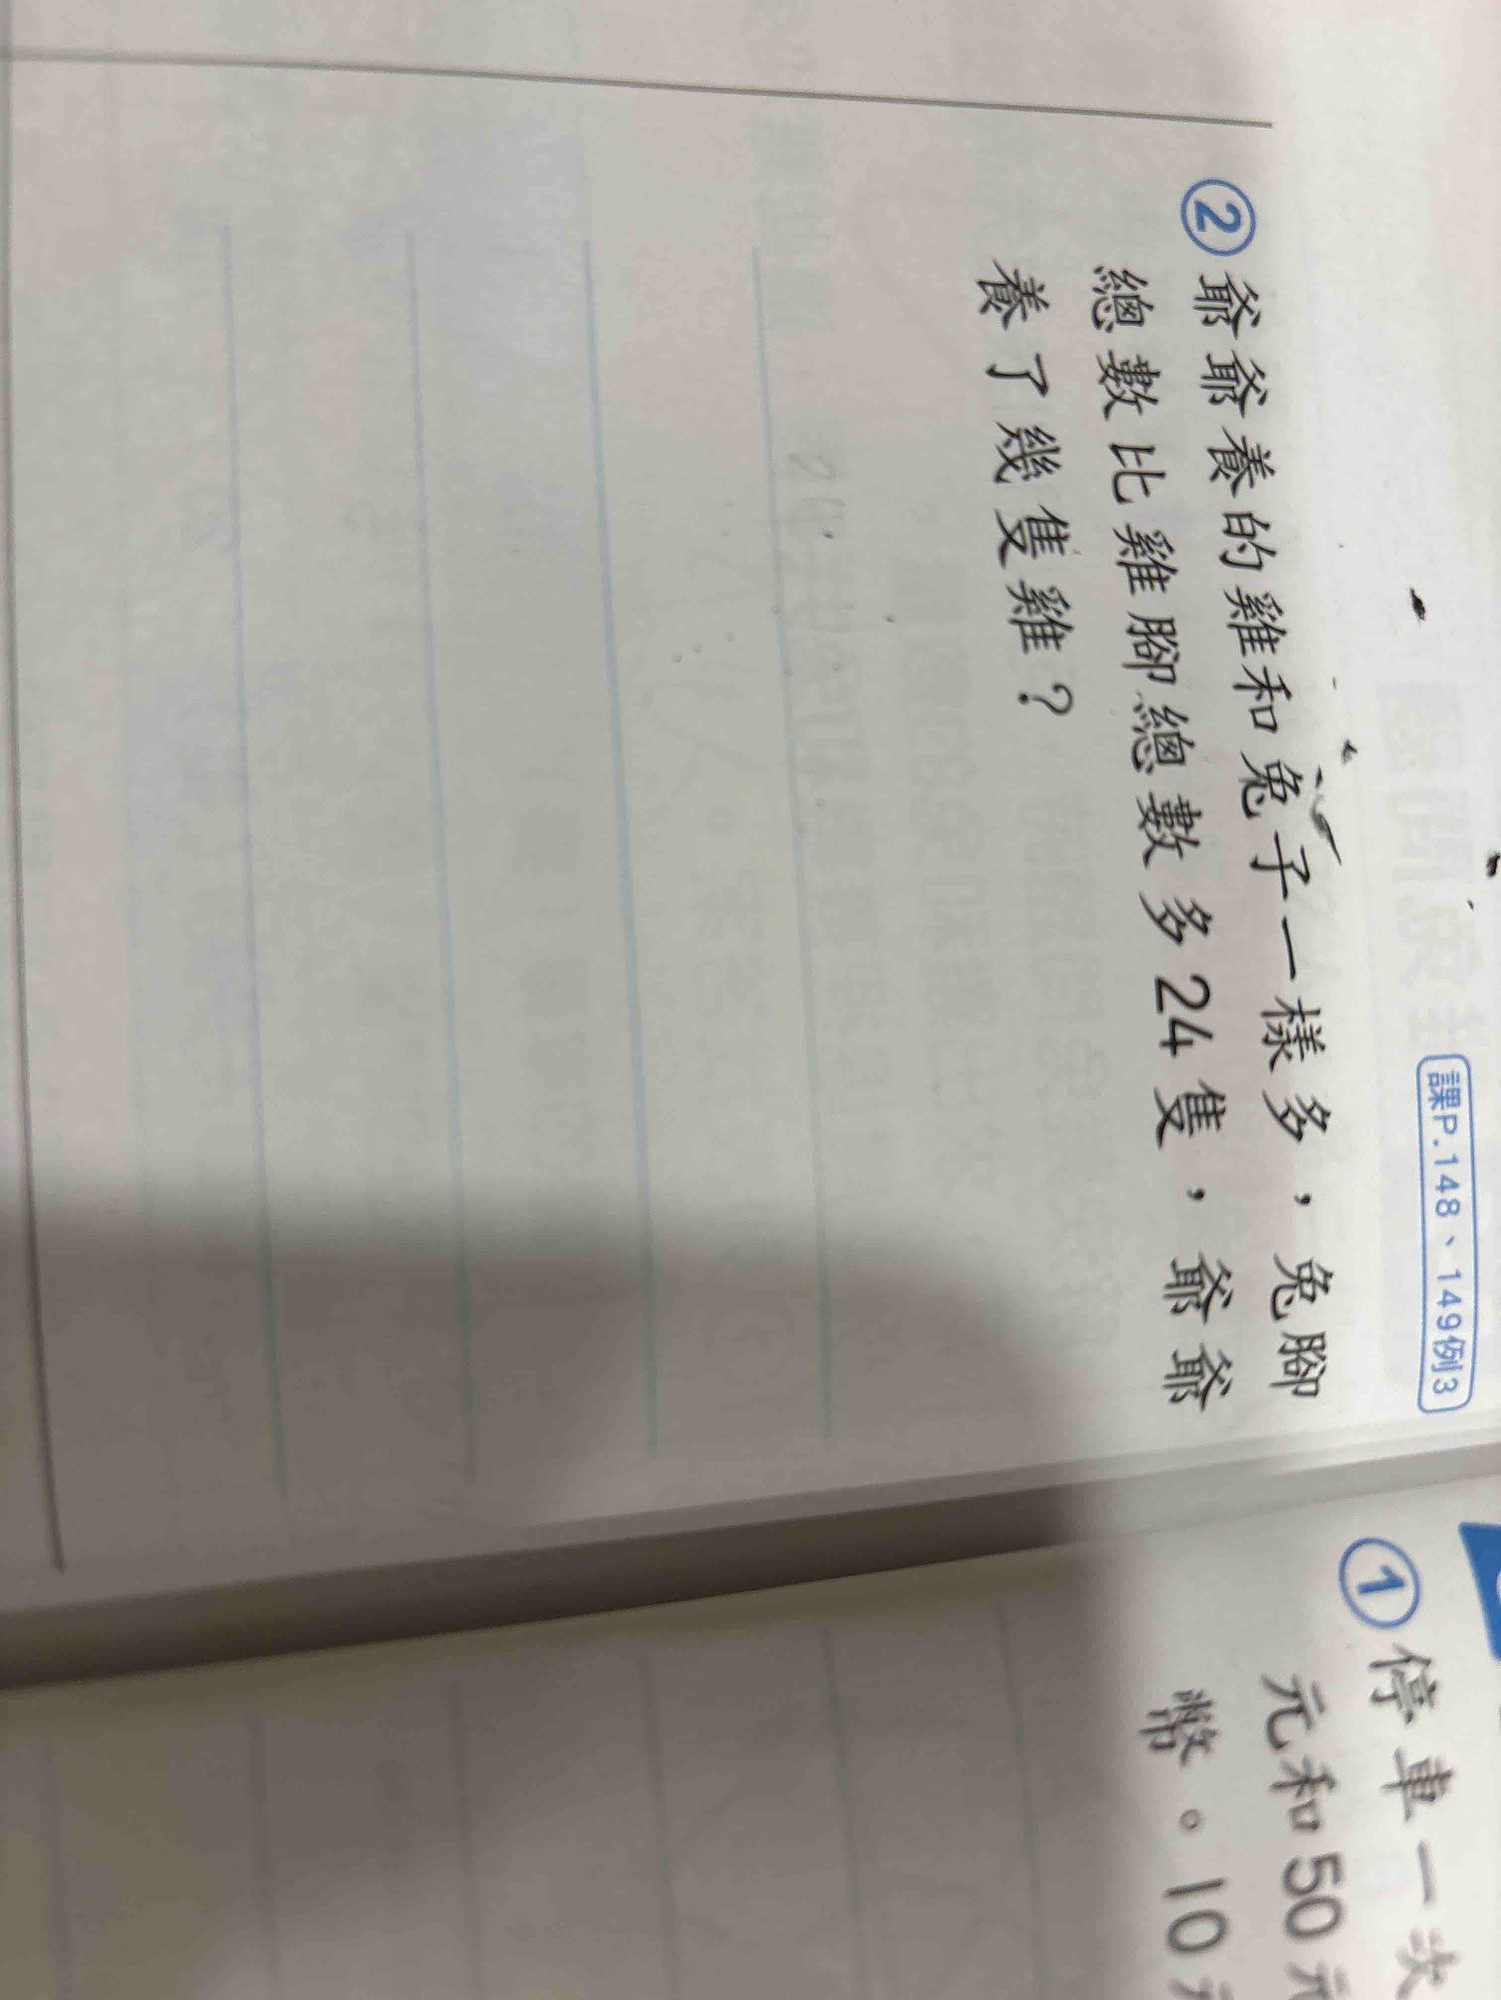 課P.148、149例3
②爺爺養的雞和兔子一樣多，兔腳
總數比雞腳總數多24隻，爺爺
養了幾隻雞？
①停車一次
元和50元
幣。10